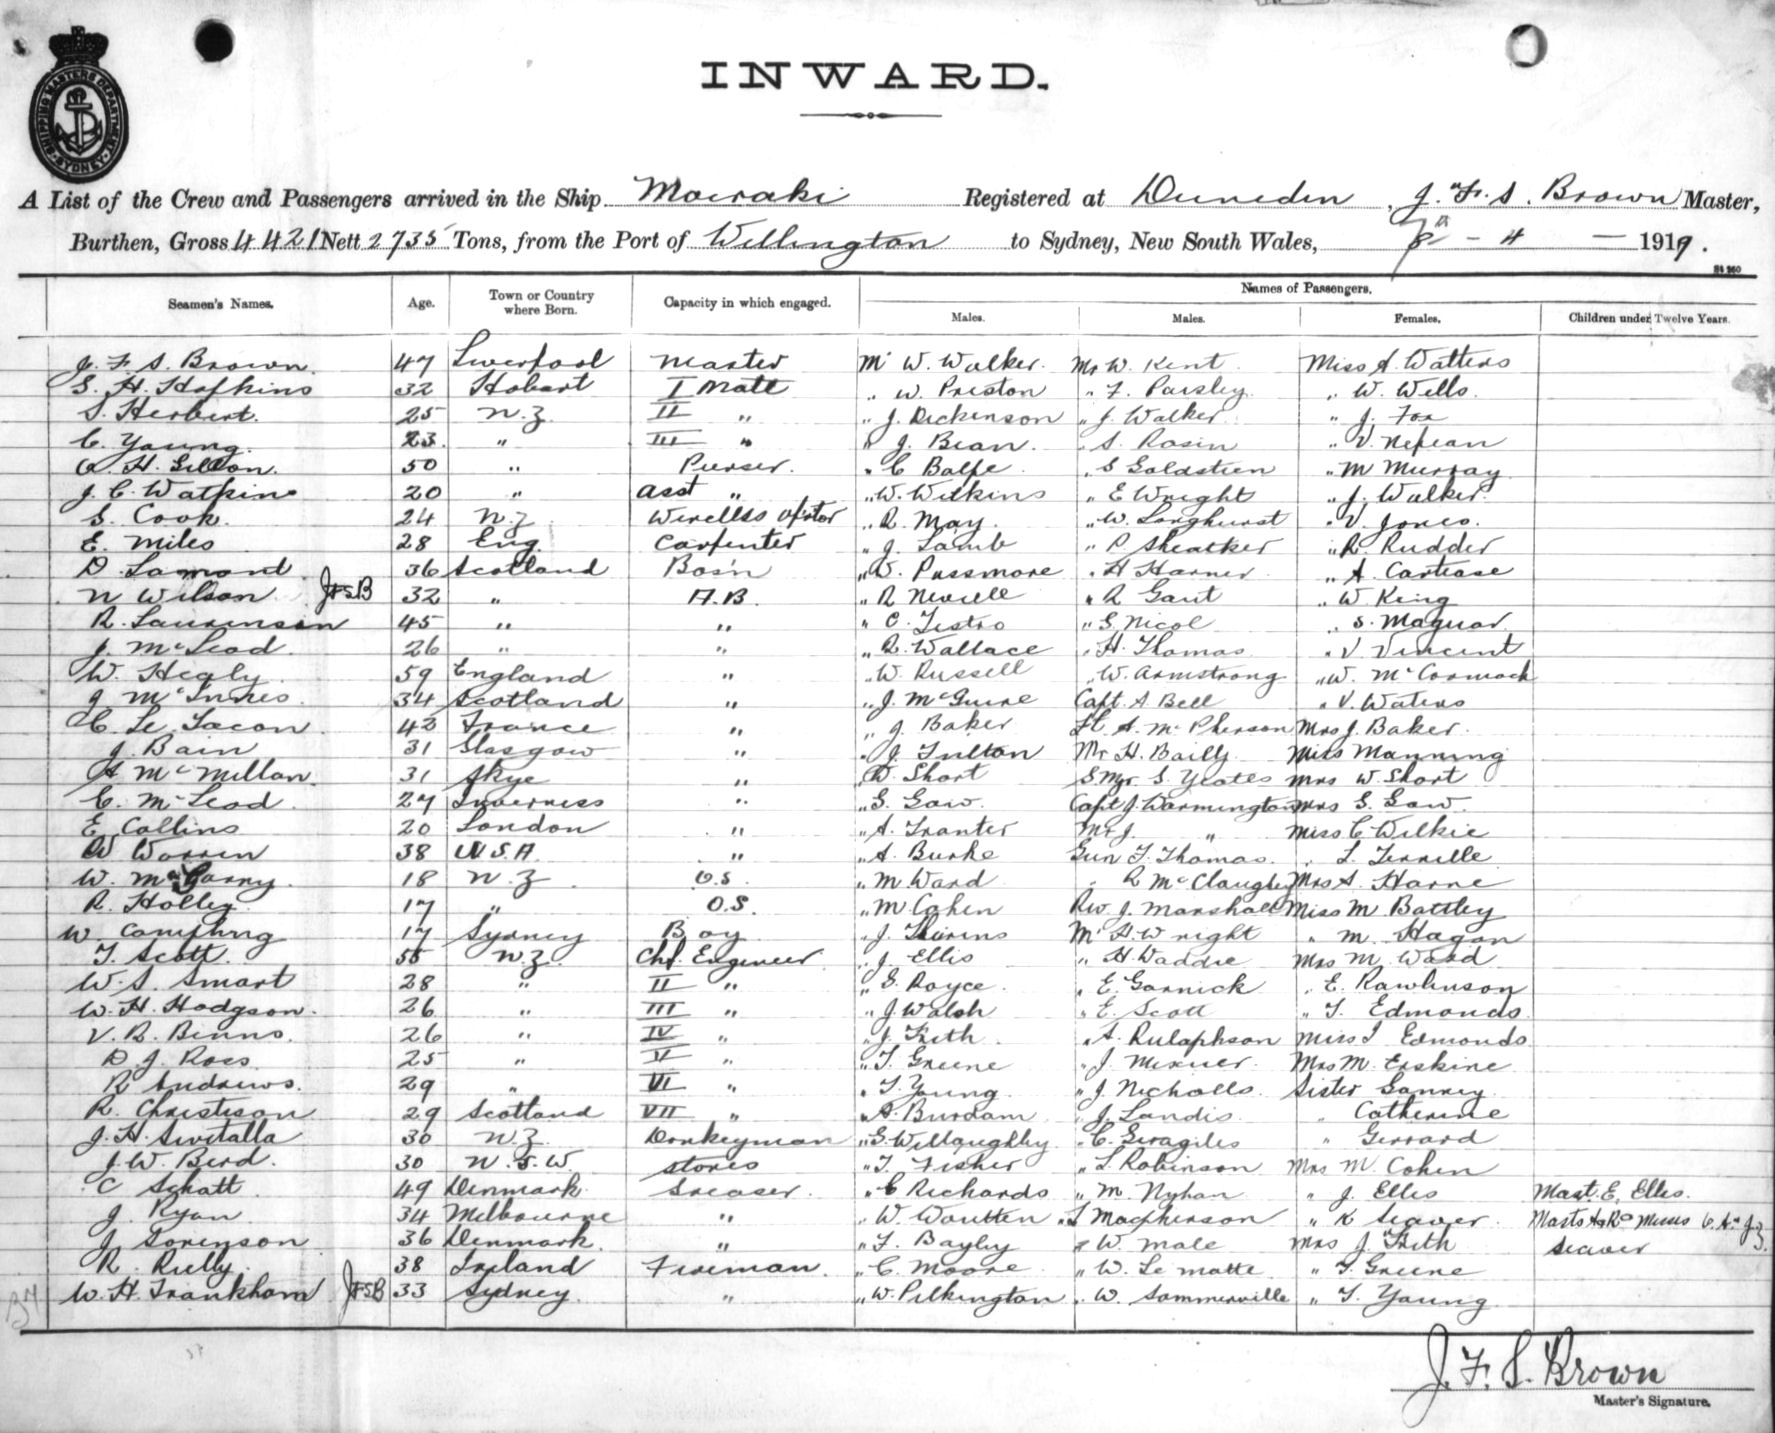 SHIPPING MASTERS DEPARTMENT SYDNEY
INWARD.
A List of the Crew and Passengers arrived in the Ship Moeraki Registered at Dunedin, J. F. S. Brown Master,
Burthen, Gross 4421 Nett 2735 Tons, from the Port of Wellington to Sydney, New South Wales, 8th - 4 - 1919.
Names of Passengers.
Seamen's Names. Age. Town or Country where Born. Capacity in which engaged. Males. Males. Females. Children under Twelve Years.
J. F. S. Brown. 47 Liverpool Master Mr W. Walker. Mr W. Kent. Miss A. Watters
S. H. Hopkins 32 Hobart I Mate " W. Preston " F. Parsley " W. Wells.
S. Herbert. 25 N.Z. II " " J. Dickinson " J. Walker " J. Fox
C. Young. 23. " III " " J. Bean. " S. Rosin " V. Nepean
H. 50 " Purser. " C. Balfe. " S Goldstien " M Murray
J. C. Watkins 20 " Asst " " W. Wilkins " E Wright " J. Walker.
S. Cook. 24 N.Z. Wireless Op'tor " R. May. " W. Longhurst " V. Jones.
E. Miles 28 Eng. Carpenter " J. Lamb " P. " R. Rudder
D. Lamont 36 Scotland Bos'n " W. Passmore " H Harner " A.
N Wilson JFSB 32 " A.B. " R Nevill " R Gant " W. King
R. Laurenson 45 " " " C. Testro " S. Nicol " S.
J. McLeod. 26 " " " R. Wallace " H. Thomas " V. Vincent
W. Healy. 59 England " " W. Russell " W. Armstrong " W. McCormack
J McInnes. 34 Scotland " " J. McGuire Capt. A Bell " V. Waters
C. Le Lacon 42 France " " J Baker A. McPherson Mrs J. Baker.
J. Bain 31 Glasgow " " J. Fulton Mr H. Bailly Miss Manning
A McMillan 31 Skye " " W. Short S. Mjr. S. Yeates Mrs W. Short
C. McLeod. 27 Inverness " " G. Gaw. Capt J. Warmington Mrs G. Gaw.
E Collins 20 London " " A. Tranter Mr J. " Miss C Wilkie
W Warren 38 U.S.A. " " A. Burke Gun T. Thomas. " L.
W. McGarry. 18 N.Z. O.S. " M Ward " R McClaughey Mrs A. Harne
R. Holley. 17 " O.S. " M Cohen Rev. J. Marshall Miss M Battley
W. 17 Sydney Boy " J. Mr H. Wright " M. Hagan
T. Scott. 55 N.Z. Chf. Engineer " J. Ellis " H. Waddie Mrs M. Ward
W. S. Smart 28 " II " " G. Royce " E. Garnick " E. Rawlinson
W. H. Hodgson. 26 " III " " J. Walsh " E. Scott " T. Edmonds
V. B. Binns 26 " IV " " J. Frith " A. Rulaphson Miss I Edmonds.
D J. Ross 25 " V " " T. Greene " J. Mrs M. Erskine
R Andrews. 29 " VI " " T. Young " J. Nicholls. Sister
R. Christison 29 Scotland VII " " A. Burdam " J. Landis " Catherine
J. H. Switalla 30 N.Z. Donkeyman " G. Willoughby " C. Geragiles " Gerrard
J. W. Bird. 30 N.S.W. Stores " T. Fisher " L. Robinson Mrs M. Cohen
C Schatt 49 Denmark Greaser. " C Richards " M. Nyhan " J. Ellis Mast. E. Ellis.
J. Ryan 34 Melbourne " " W. " T Macpherson " K Seaver
J. Sorenson 36 Denmark. " " T. Bayley " W. Male Mrs J. Frith Seaver
R. Reilly. 38 Ireland Fireman. " C. Moore " W. Le Matte " T. Greene
37 W. H. Frankham JFSB 33 Sydney. " " W. Pilkington " W. Sommerville " T. Young
J. F. S. Brown
Master's Signature.